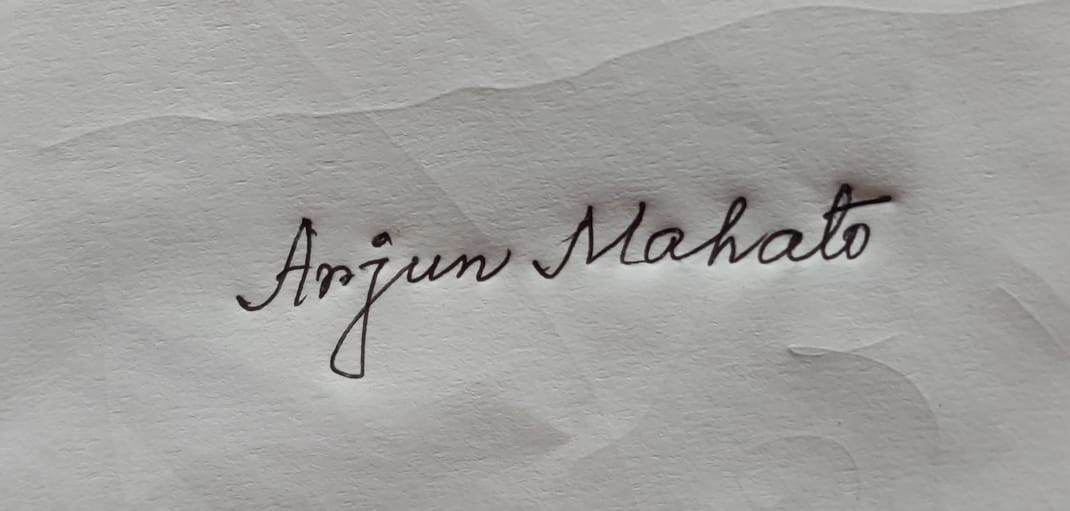 Arjun Mahato